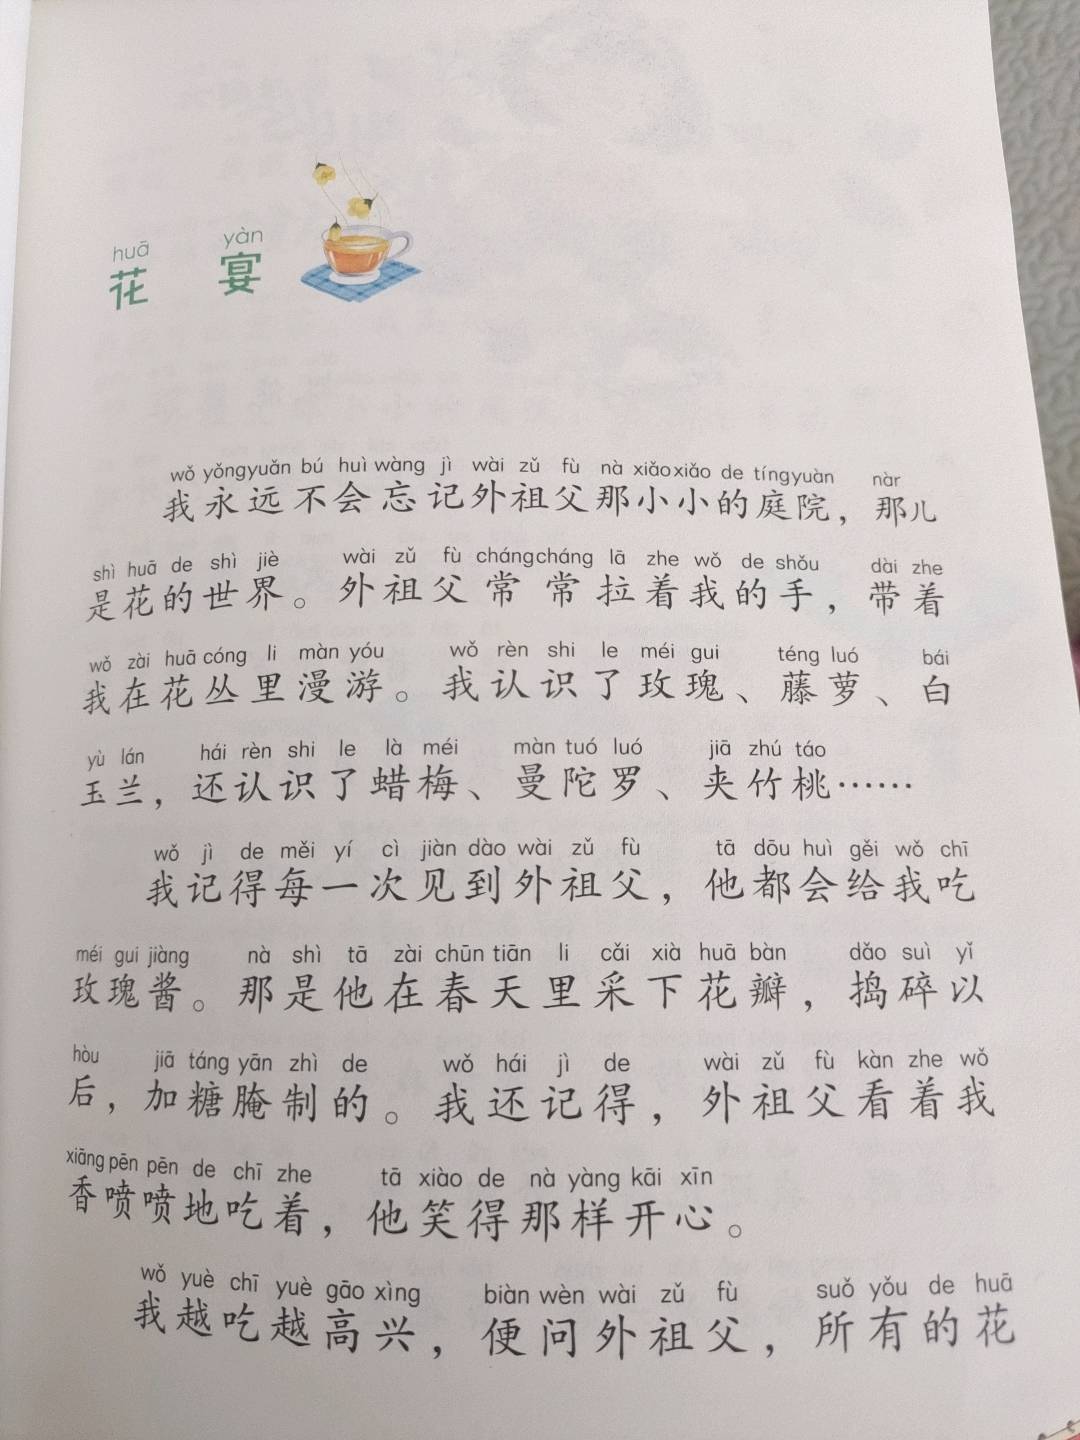 huā yàn
花 宴
wǒ yǒngyuǎn bú huì wàng jì wài zǔ fù nà xiǎoxiǎo de tíngyuàn nàr
我永远不会忘记外祖父那小小的庭院，那儿
shì huā de shì jiè wài zǔ fù chángcháng lā zhe wǒ de shǒu dài zhe
是花的世界。外祖父常常拉着我的手，带着
wǒ zài huā cóng li màn yóu wǒ rèn shi le méi gui téng luó bái
我在花丛里漫游。我认识了玫瑰、藤萝、白
yù lán hái rèn shi le là méi màn tuó luó jiā zhú táo
玉兰，还认识了蜡梅、曼陀罗、夹竹桃……
wǒ jì de měi yí cì jiàn dào wài zǔ fù tā dōu huì gěi wǒ chī
我记得每一次见到外祖父，他都会给我吃
méi gui jiàng nà shì tā zài chūn tiān li cǎi xià huā bàn dǎo suì yǐ
玫瑰酱。那是他在春天里采下花瓣，捣碎以
hòu jiā táng yān zhì de wǒ hái jì de wài zǔ fù kàn zhe wǒ
后，加糖腌制的。我还记得，外祖父看着我
xiāng pēn pēn de chī zhe tā xiào de nà yàng kāi xīn
香喷喷地吃着，他笑得那样开心。
wǒ yuè chī yuè gāo xìng biàn wèn wài zǔ fù suǒ yǒu de huā
我越吃越高兴，便问外祖父，所有的花